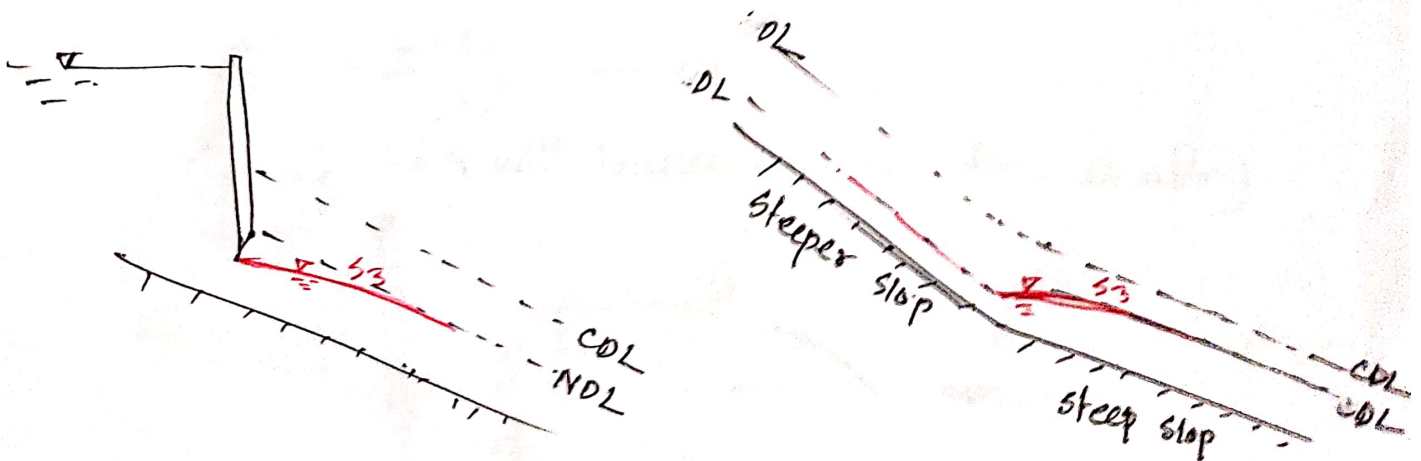 S3
CDL
NDL
DL
DL
Steeper Slop
S3
CDL
CDL
Steep Slop